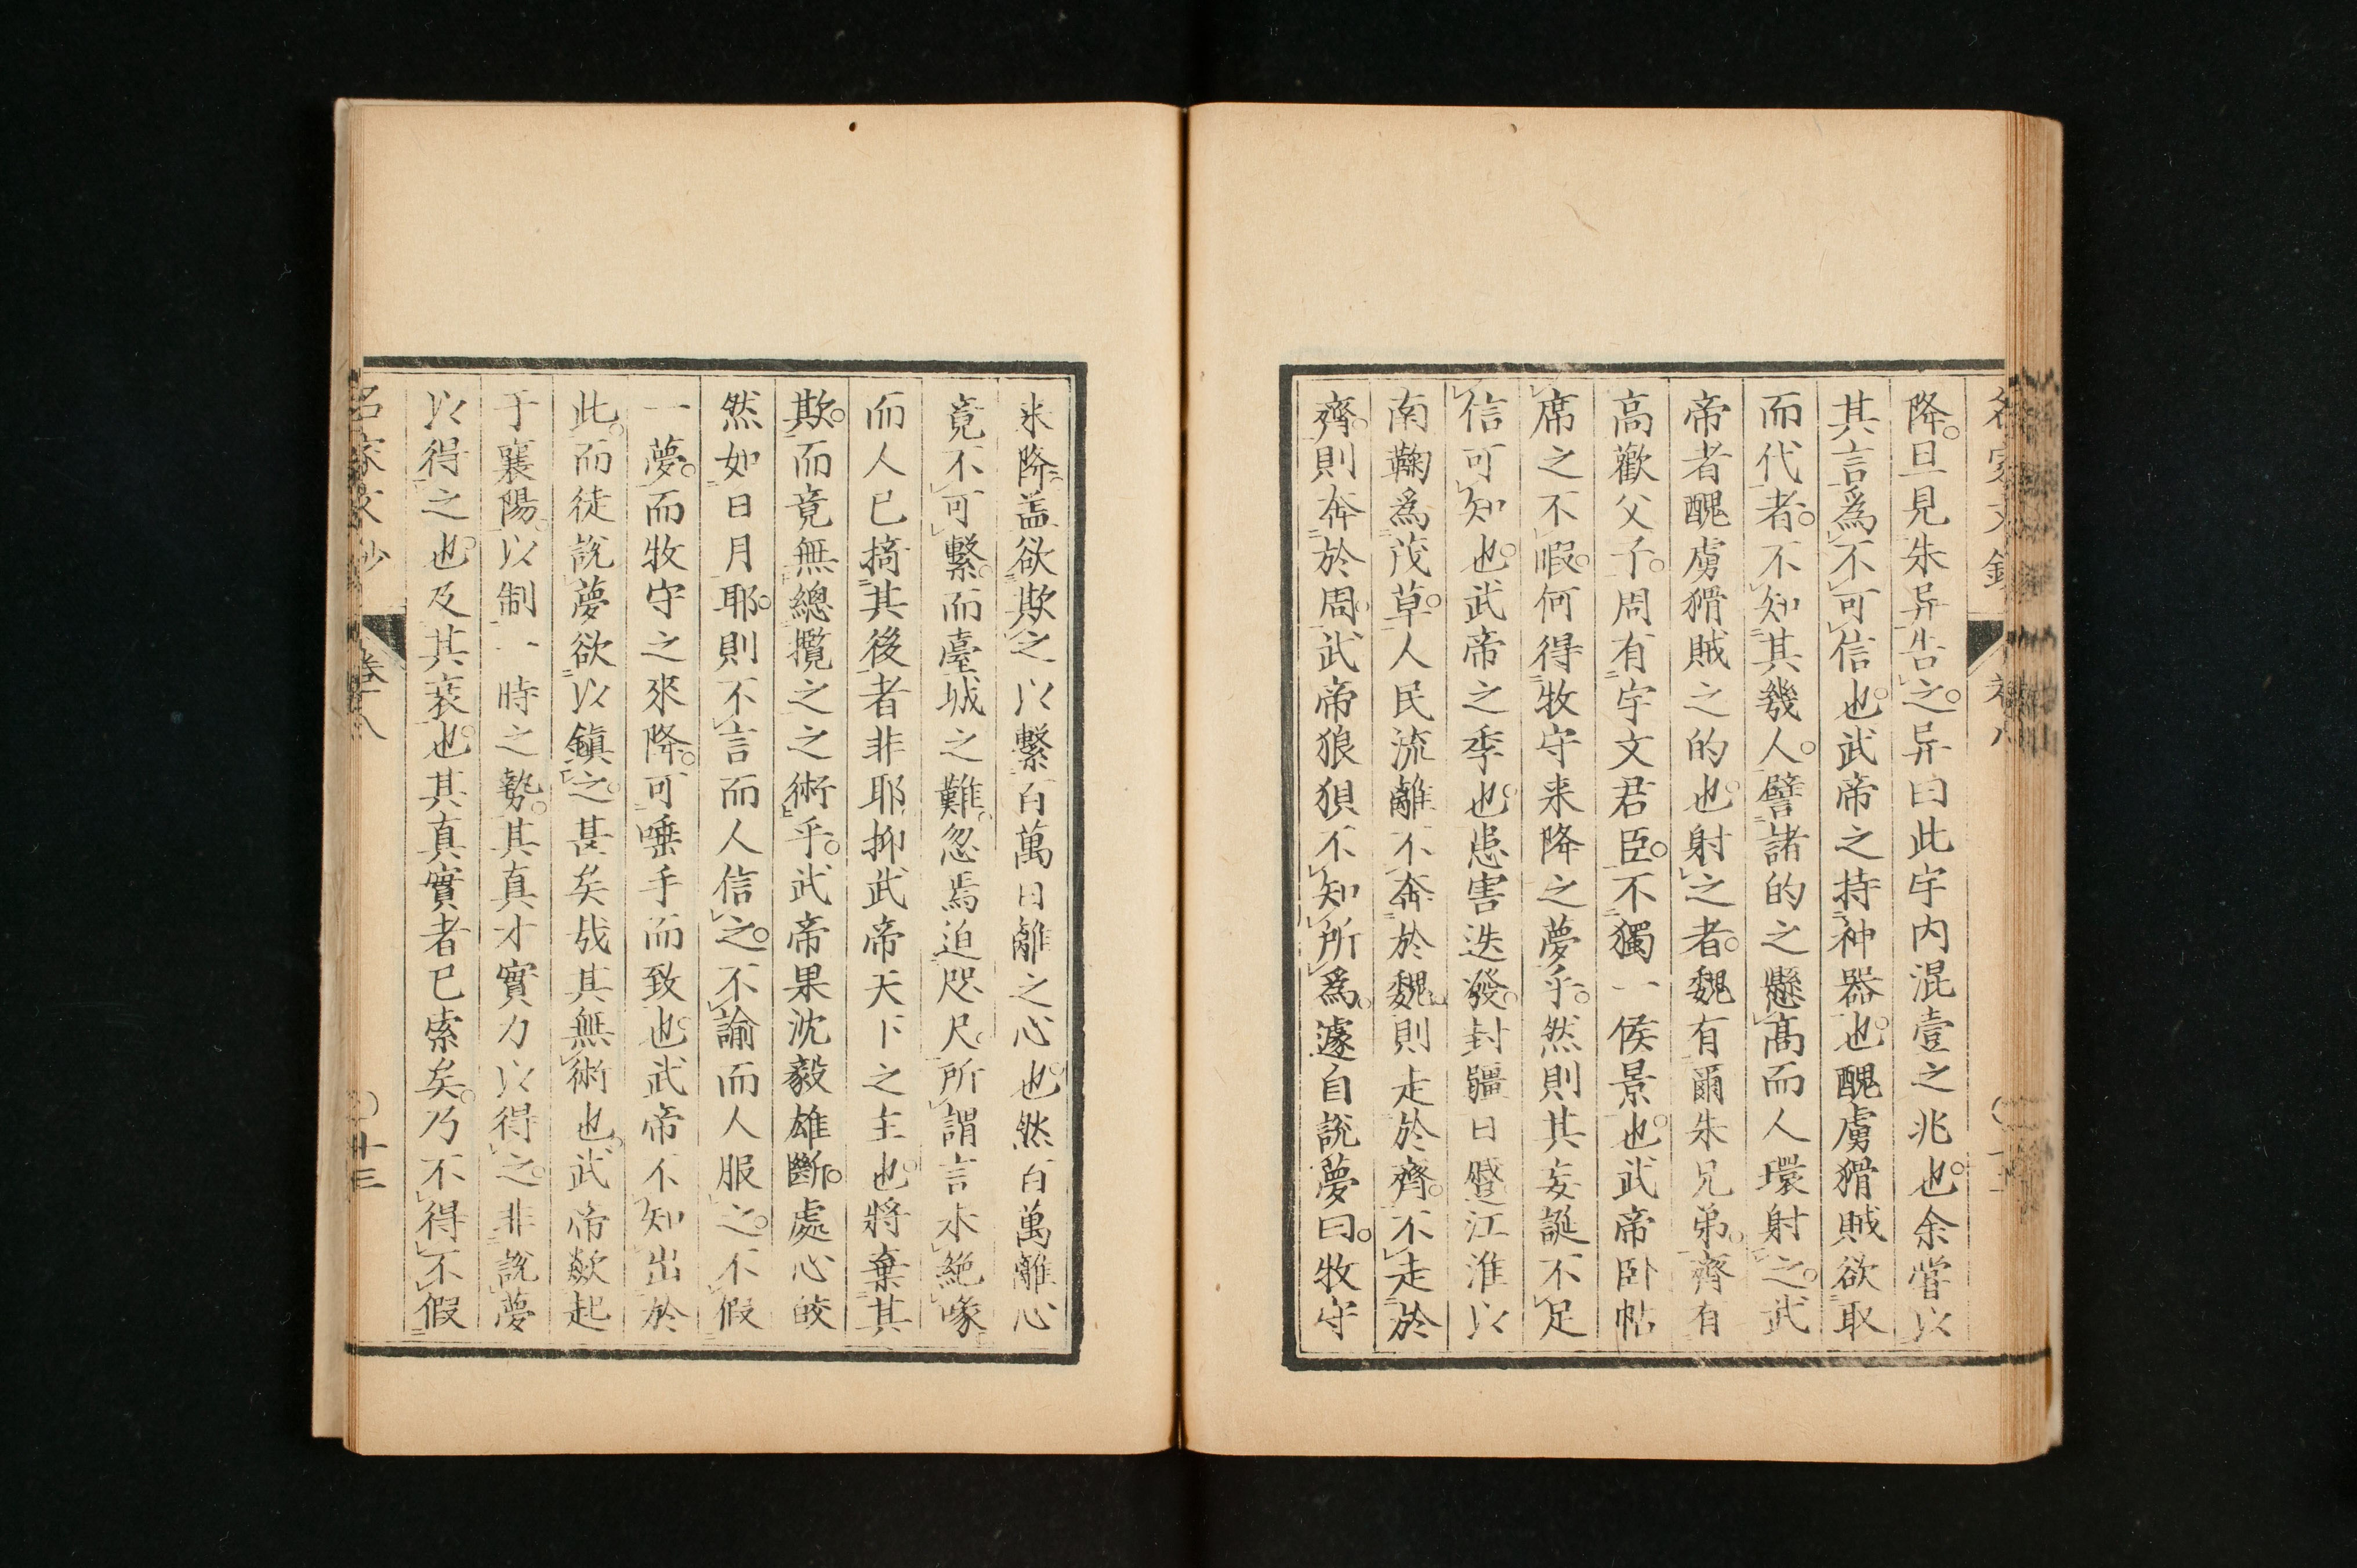 降。旦見朱异告之。异曰此宇内混壹之兆也。余嘗以
其言爲不可信也。武帝之持神器也。醜虜猾賊欲取
而代者。不知其幾人。譬諸的之懸高而人環射之。武
帝者醜虜猾賊之的也。射之者。魏有爾朱兄弟。齊有
高歡父子。周有宇文君臣。不獨一侯景也。武帝卧帖
席之不暇。何得牧守来降之夢乎。然則其妄誕不足
信可知也。武帝之季也。患害迭發。封疆日蹙江淮以
南鞠爲茂草。人民流離不奔於魏則走於齊。不走於
齊。則奔於周。武帝狼狽不知所爲。遽自説夢曰。牧守
来降。盖欲欺之以繫百萬日離之心也。然百萬離心
竟不可繫。而臺城之難。忽焉迫咫尺。所謂言未絶喙
而人已摘其後者非耶抑武帝天下之主也。將棄其
欺。而竟無總攬之之術乎。武帝果沈毅雄斷。處心皎
然如日月耶。則不言而人信之。不諭而人服之。不假
一夢。而牧守之來降。可唾手而致也。武帝不知出於
此。而徒説夢欲以鎭之。甚矣哉其無術也。武帝歘起
于襄陽。以制一時之勢。其真才實力以得之。非説夢
以得之也。及其衰也。其真實者已索矣。乃不得不假
名家文鈔
卷八
○十三